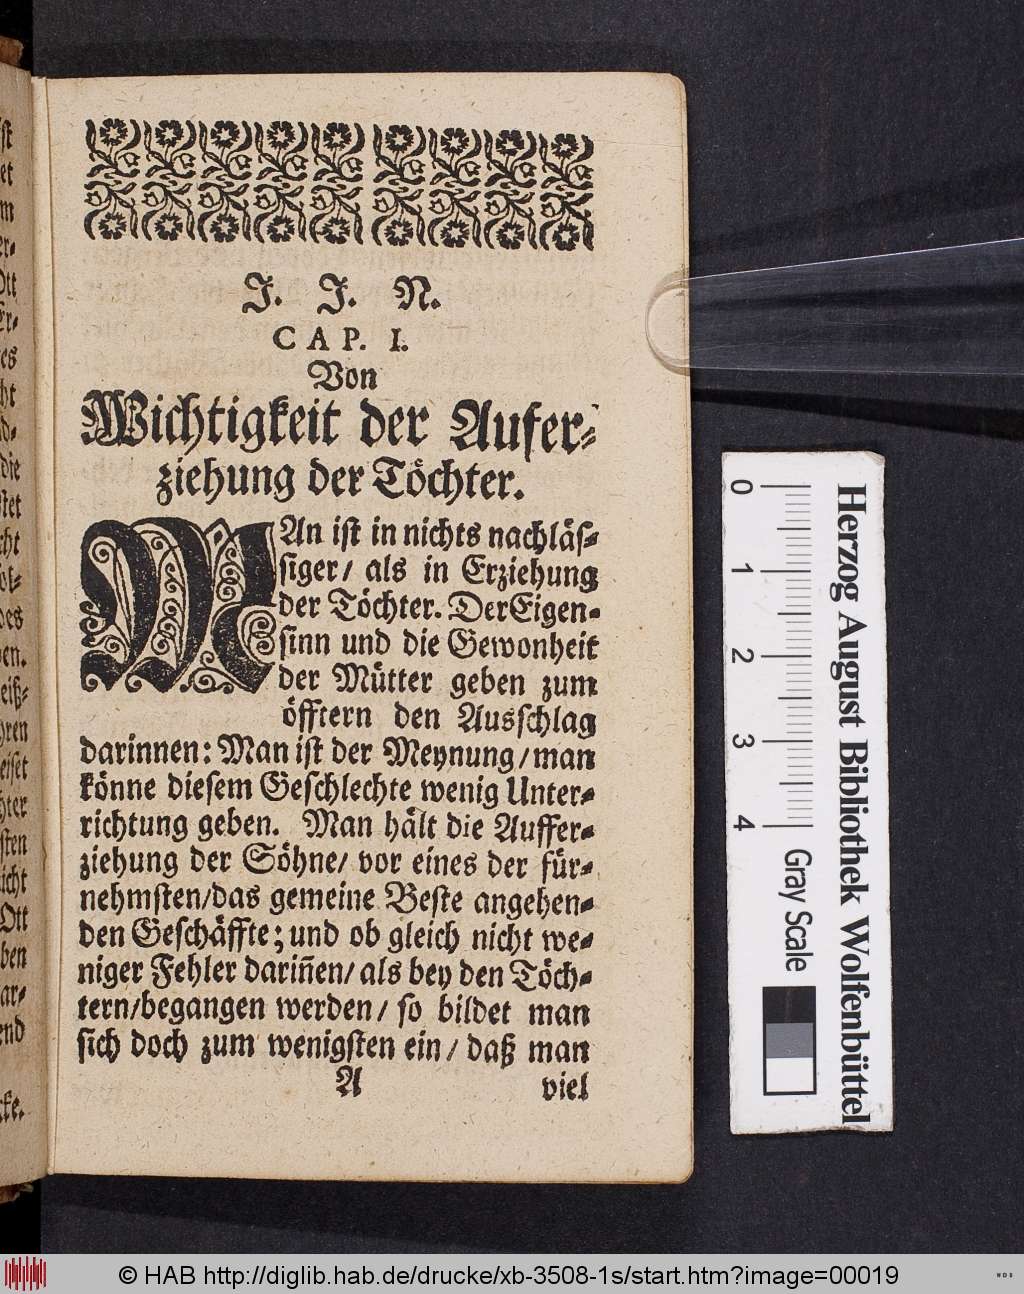 J. J. N.
CAP. I.
Von
Wichtigkeit der Aufer-
ziehung der Töchter.
MAn ist in nichts nachläs-
siger/ als in Erziehung
der Töchter. Der Eigen-
sinn und die Gewonheit
der Mütter geben zum
öfftern den Ausschlag
darinnen: Man ist der Meynung/ man
könne diesem Geschlechte wenig Unter-
richtung geben. Man hält die Auffer-
ziehung der Söhne/ vor eines der für-
nehmsten/ das gemeine Beste angehen-
den Geschäffte; und ob gleich nicht we-
niger Fehler dariñen/ als bey den Töch-
tern/ begangen werden/ so bildet man
sich doch zum wenigsten ein/ daß man
A viel
0 1 2 3 4
Herzog August Bibliothek Wolfenbüttel
Gray Scale
© HAB http://diglib.hab.de/drucke/xb-3508-1s/start.htm?image=00019